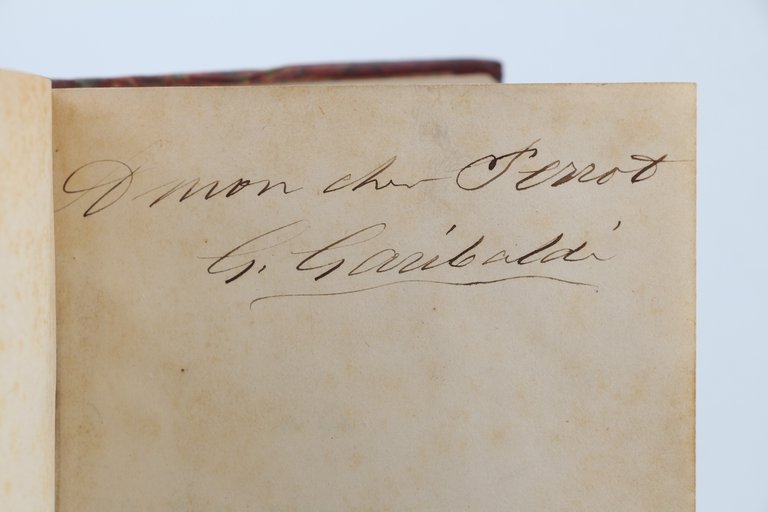 A mon cher Perrot
G. Garibaldi